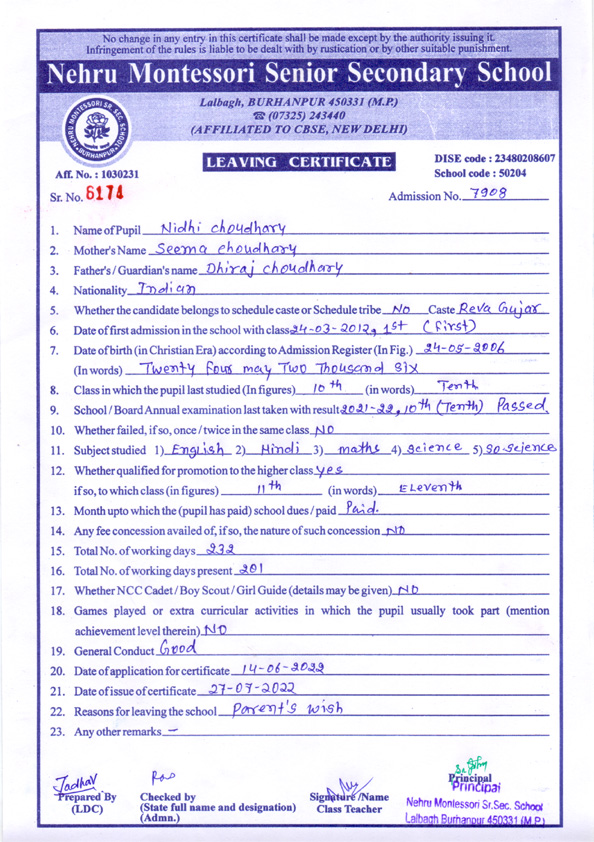 No change in any entry in this certificate shall be made except by the authority issuing it.
Infringement of the rules is liable to be dealt with by rustication or by other suitable punishment.
Nehru Montessori Senior Secondary School
Lalbagh, BURHANPUR 450331 (M.P.)
☎ (07325) 243440
(AFFILIATED TO CBSE, NEW DELHI)
NEHRU MONTESSORI SR. SEC. SCHOOL
BURHANPUR
LEAVING CERTIFICATE
DISE code : 23480208607
Aff. No. : 1030231 School code : 50204
Sr. No. 6174 Admission No. 7908
1. Name of Pupil Nidhi Choudhary
2. Mother's Name Seema Choudhary
3. Father's / Guardian's name Dhiraj Choudhary
4. Nationality Indian
5. Whether the candidate belongs to schedule caste or Schedule tribe No Caste Reva Gujar
6. Date of first admission in the school with class 24-03-2012, 1st (First)
7. Date of birth (in Christian Era) according to Admission Register (In Fig.) 24-05-2006
(In words) Twenty Four may Two Thousand Six
8. Class in which the pupil last studied (In figures) 10th (in words) Tenth
9. School / Board Annual examination last taken with result 2021-22, 10th (Tenth) Passed,
10. Whether failed, if so, once / twice in the same class NO
11. Subject studied 1) English 2) Hindi 3) maths 4) Science 5) So-Science
12. Whether qualified for promotion to the higher class yes
if so, to which class (in figures) 11th (in words) Eleventh
13. Month upto which the (pupil has paid) school dues / paid Paid.
14. Any fee concession availed of, if so, the nature of such concession NO
15. Total No. of working days 232
16. Total No. of working days present 201
17. Whether NCC Cadet / Boy Scout / Girl Guide (details may be given) NO
18. Games played or extra curricular activities in which the pupil usually took part (mention
achievement level therein) NO
19. General Conduct Good
20. Date of application for certificate 14-06-2022
21. Date of issue of certificate 27-07-2022
22. Reasons for leaving the school Parent's Wish
23. Any other remarks —
Jadhav Rao
Prepared By Checked by Signature /Name Principal
(LDC) (State full name and designation) Class Teacher Principal
(Admn.) Nehru Montessori Sr.Sec. School
Lalbagh Burhanpur 450331 (M.P.)